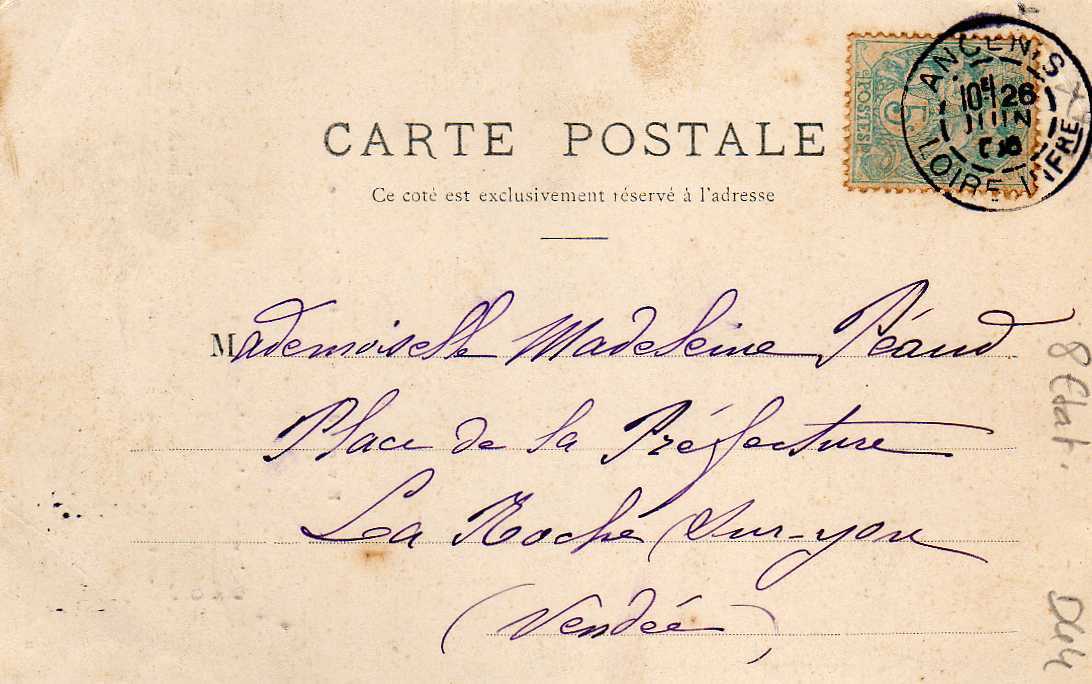 ANCENIS
10E 26
JUIN
LOIRE INFRE
POSTES
5c
CARTE POSTALE
Ce coté est exclusivement réservé à l'adresse
Mademoiselle Madeleine Péaud
Place de la Préfecture
La Roche sur-yon
(Vendée)
8 Etat.
D44